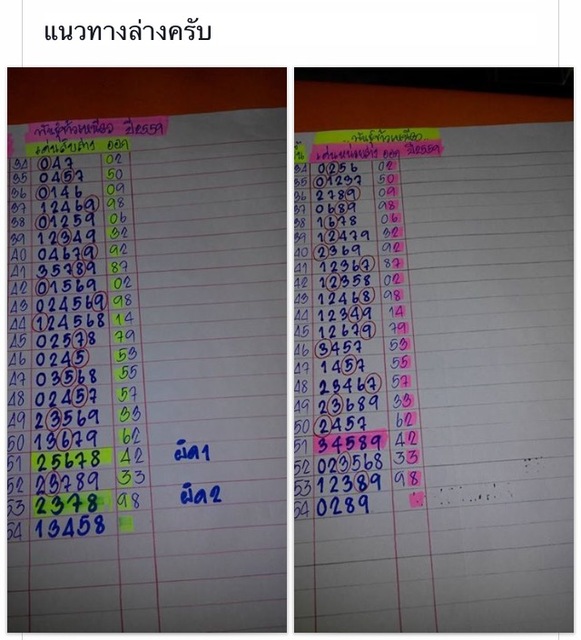 แนวทางล่างครับ
พันธุ์ข้าวเหนียว ปี2559
เด่นสิบล่าง ออก
34 047 02
35 0457 50
36 0146 09
37 12469 98
38 01259 06
39 12349 32
40 04679 92
41 35789 87
42 01569 02
43 024569 98
44 124568 14
45 02578 79
46 0245 53
47 03568 55
48 02457 57
49 23569 33
50 13679 62
51 25678 42 ผิด1
52 23789 33
53 2378 98 ผิด2
54 13458
พันธุ์ข้าวเหนียว
เด่นหน่วยล่าง ออก ปี2559
34 0256 02
35 01237 50
36 2789 09
37 0689 98
38 1678 06
39 12479 32
40 2369 92
41 12367 87
42 12358 02
43 12468 98
44 12349 14
45 12679 79
46 3457 53
47 1457 55
48 23467 57
49 23689 33
50 2457 62
51 34589 42
52 023568 33
53 12389 98
54 0289